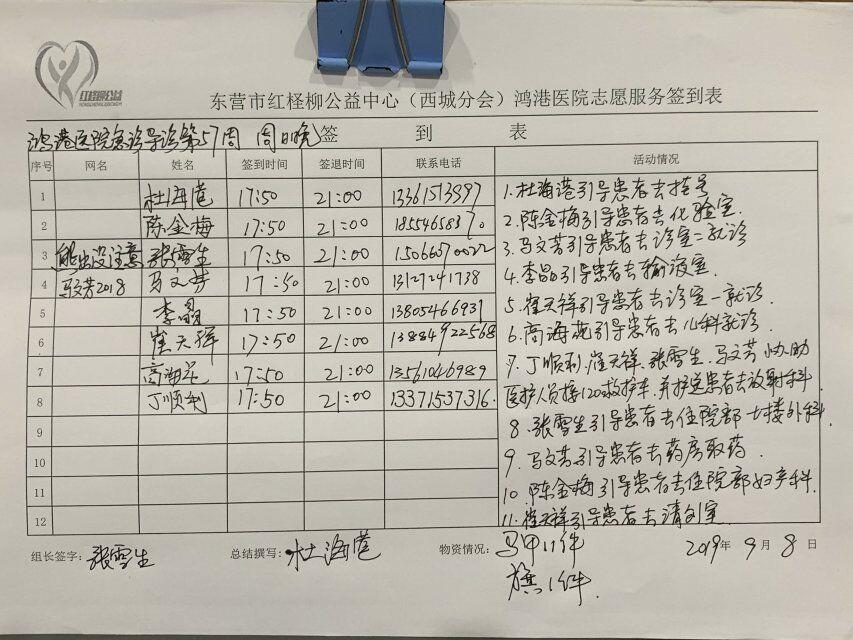 红柽柳公益
东营市红柽柳公益中心（西城分会）鸿港医院志愿服务签到表
鸿港医院急诊导诊第57周 周日晚 签到表
序号 网名 姓名 签到时间 签退时间 联系电话 活动情况
1 杜海港 17:50 21:00 13361513997
2 陈金梅 17:50 21:00
3 张雪生 17:50 21:00 15066570022
4 马文芳2018 马文芳 17:50 21:00 13127241738
5 李晶 17:50 21:00 13805466931
6 崔天祥 17:50 21:00 13884922568
7 17:50 21:00 13561046989
8 丁顺利 17:50 21:00 13371537316
9
10
11
12
1.杜海港引导患者去挂号
2.陈金梅引导患者去化验室.
3.马文芳引导患者去诊室二就诊
4.李晶引导患者去输液室.
5.崔天祥引导患者去诊室一就诊.
6.高海 引导患者去 科就诊.
7.丁顺利.崔天祥.张雪生.马文芳协助
医护人员接120救护车.并护送患者去放射科.
8.张雪生引导患者去住院部七楼外科.
9.马文芳引导患者去药房取药.
10.陈金梅引导患者去住院部妇产科.
11.崔天祥引导患者去清创室.
组长签字：张雪生 总结撰写：杜海港 物资情况：马甲11件 2019年9月8日
旗1件.